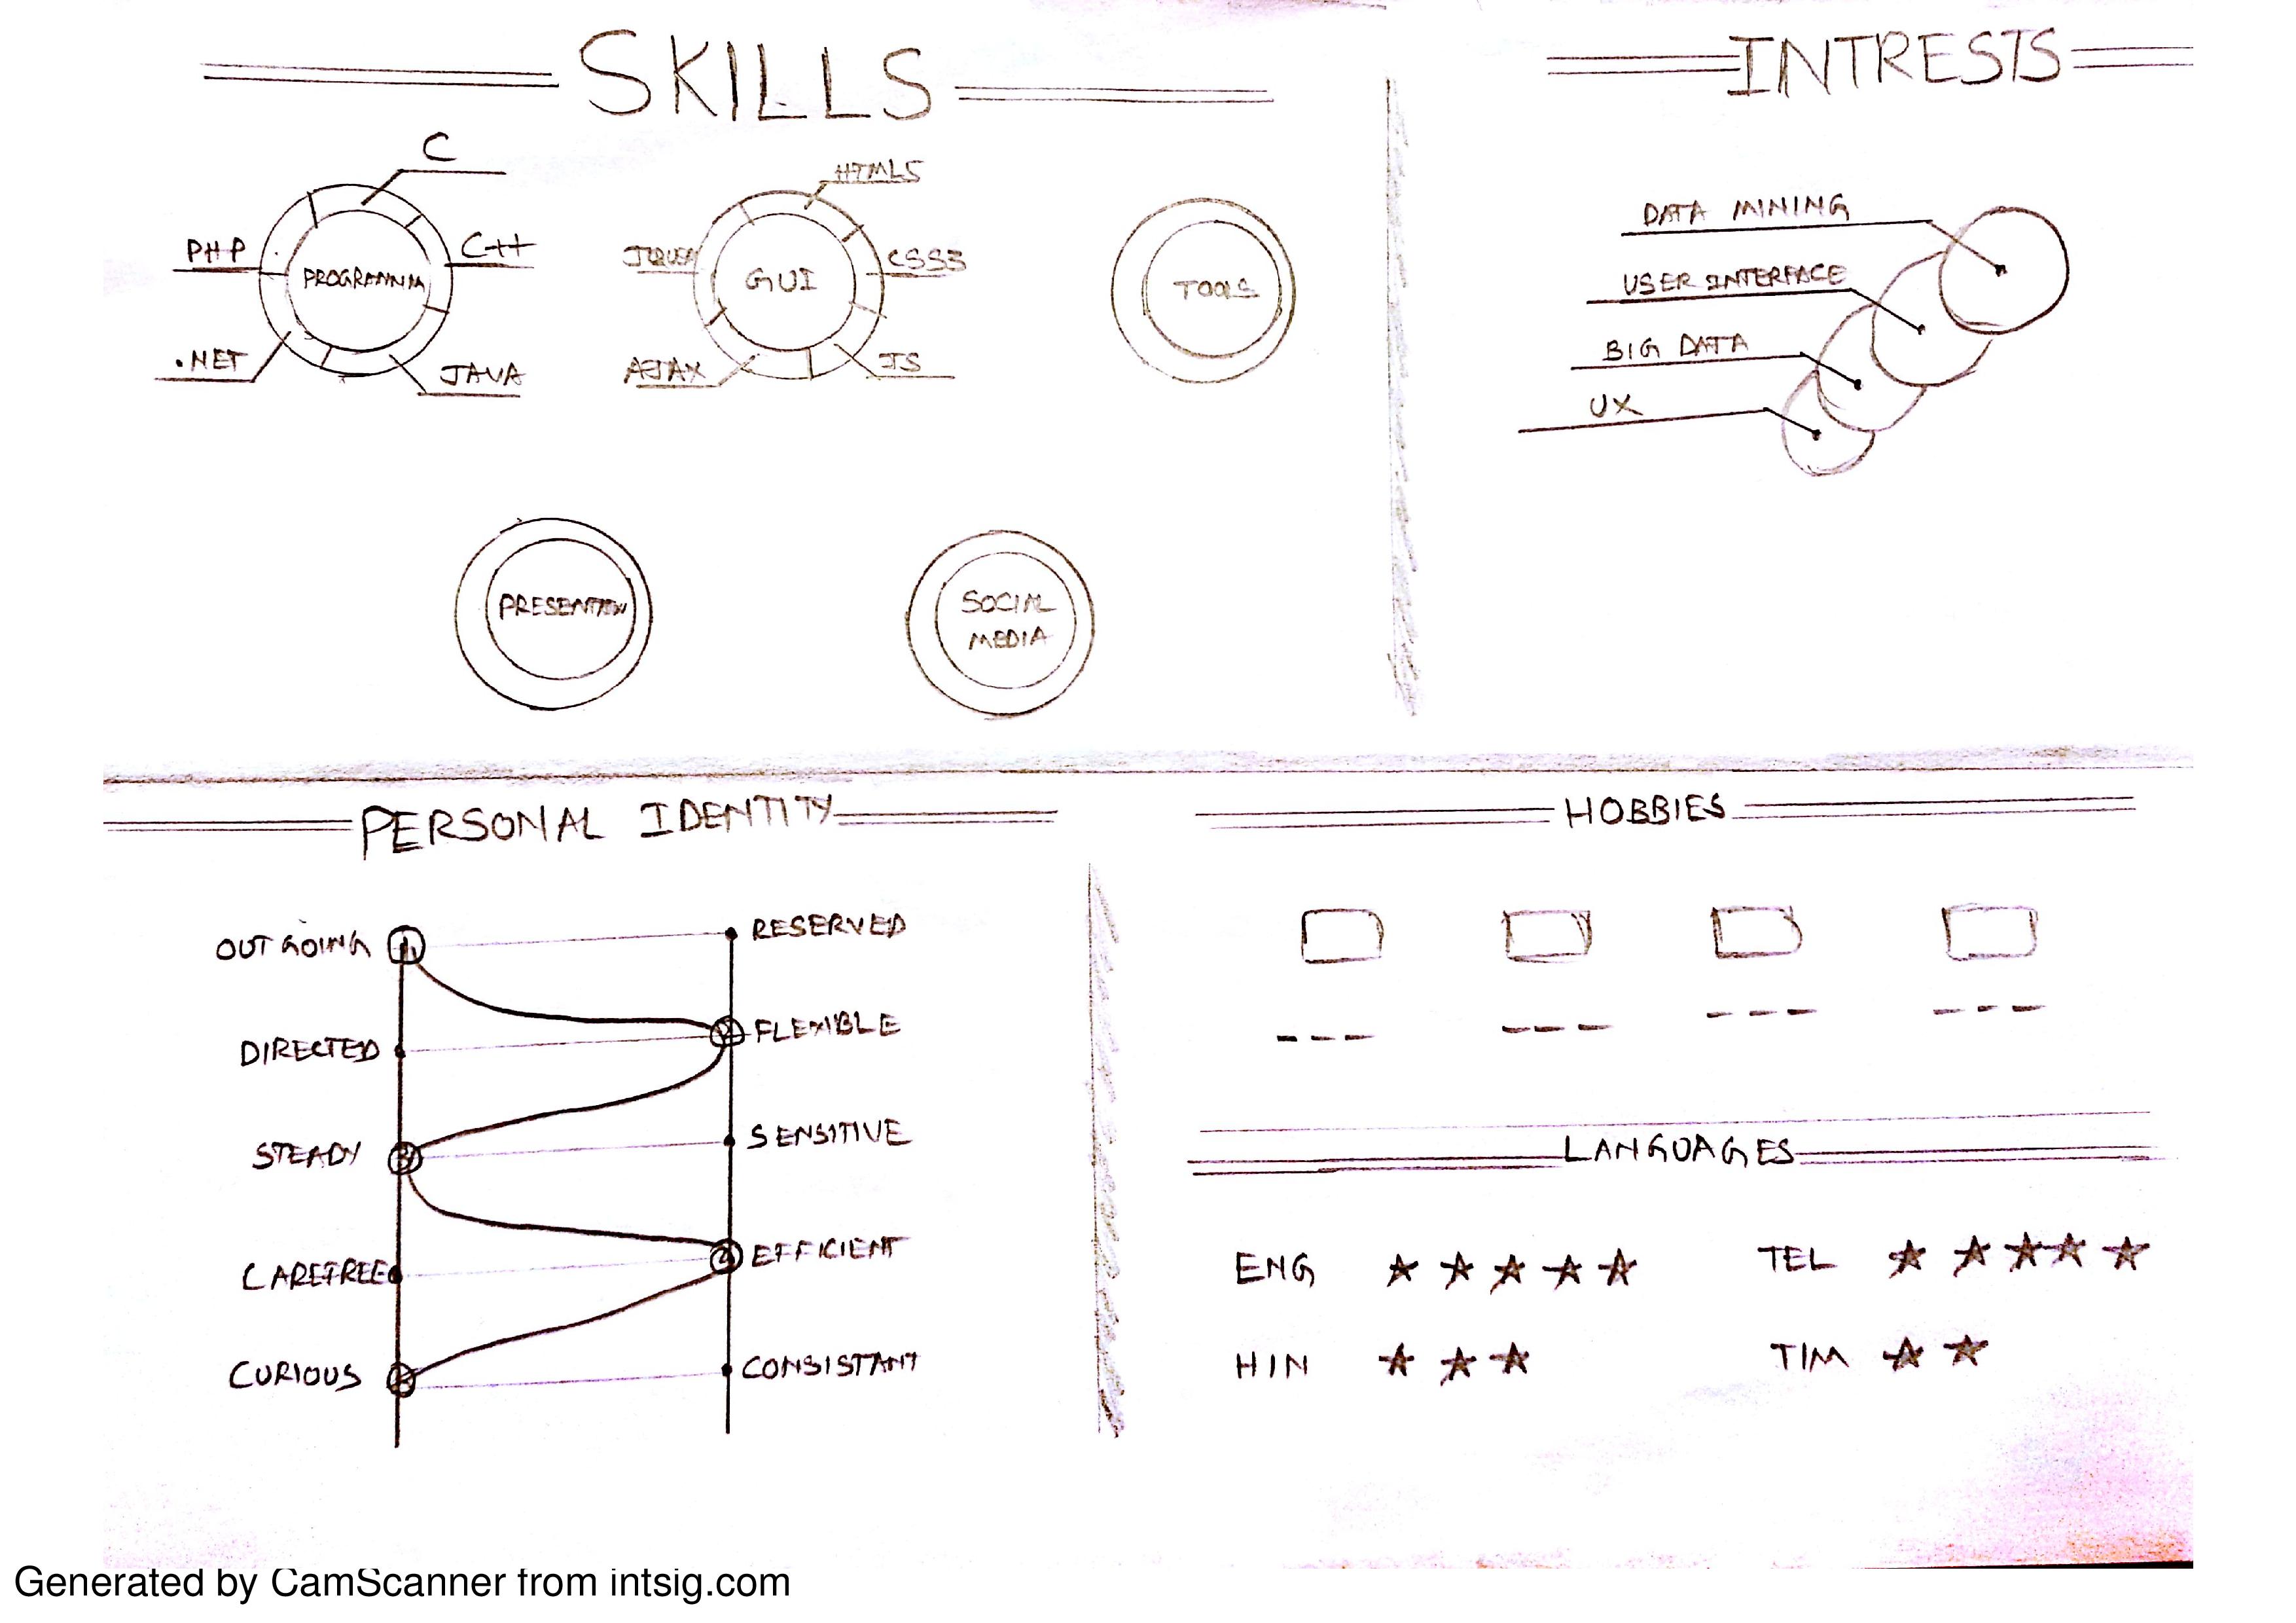 SKILLS
INTRESTS
C
PHP
C++
PROGRAMMIN
.NET
JAVA
HTML5
JQUERY
CSS3
GUI
AJAX
JS
TOOLS
PRESENTATION
SOCIAL
MEDIA
DATA MINING
USER INTERFACE
BIG DATA
UX
PERSONAL IDENTITY
OUTGOING
RESERVED
DIRECTED
FLEXIBLE
STEADY
SENSITIVE
CAREFREE
EFFICIENT
CURIOUS
CONSISTANT
HOBBIES
LANGUAGES
ENG
TEL
HIN
TIM
Generated by CamScanner from intsig.com